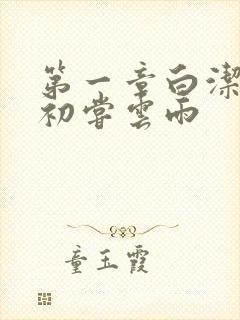 第一章白潔
初嘗雲雨
童玉霞